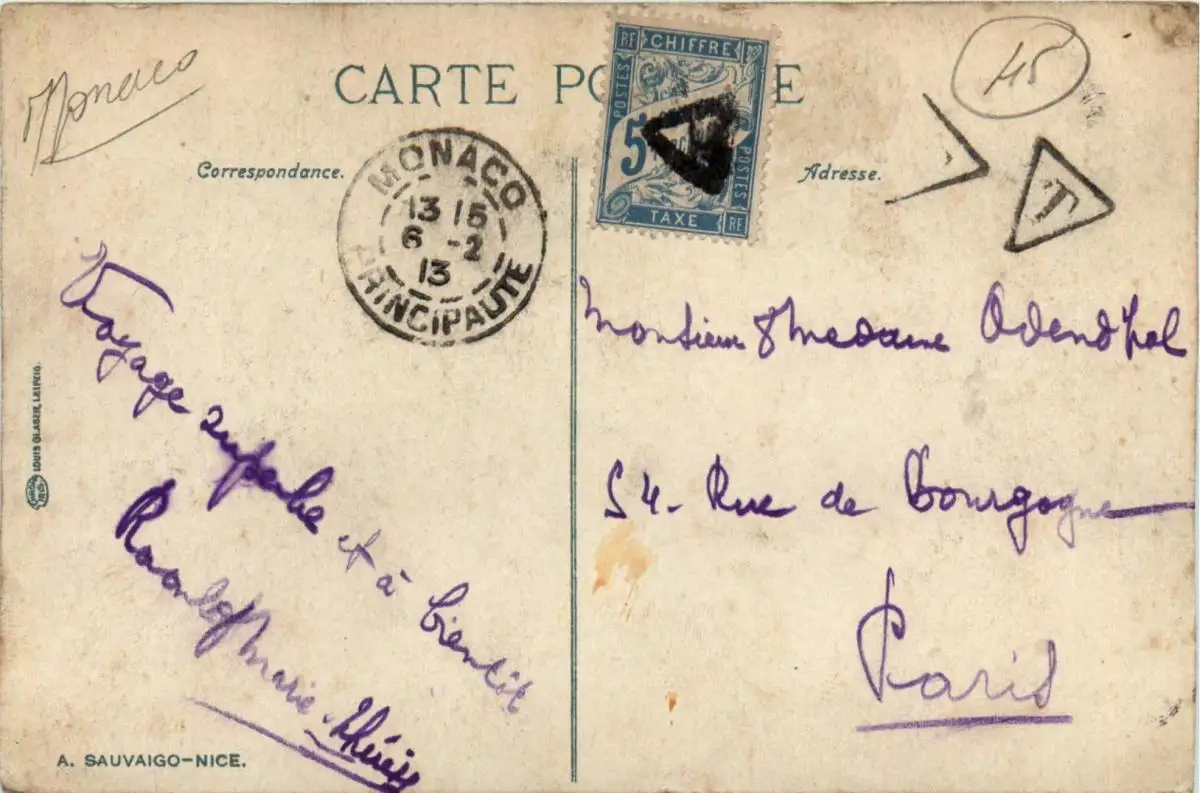 Monaco
CARTE PO E
45
Correspondance.
Adresse.
MONACO
13 15
6 -2
13
PRINCIPAUTE
RF CHIFFRE
POSTES
5
POSTES
TAXE RF
T
Voyage superbe et à bientôt
Raoul & Marie-Thérèse
Monsieur & Madame
54- Rue de Bourgogne
Paris
LOUIS GLASER, LEIPZIG.
A. SAUVAIGO-NICE.